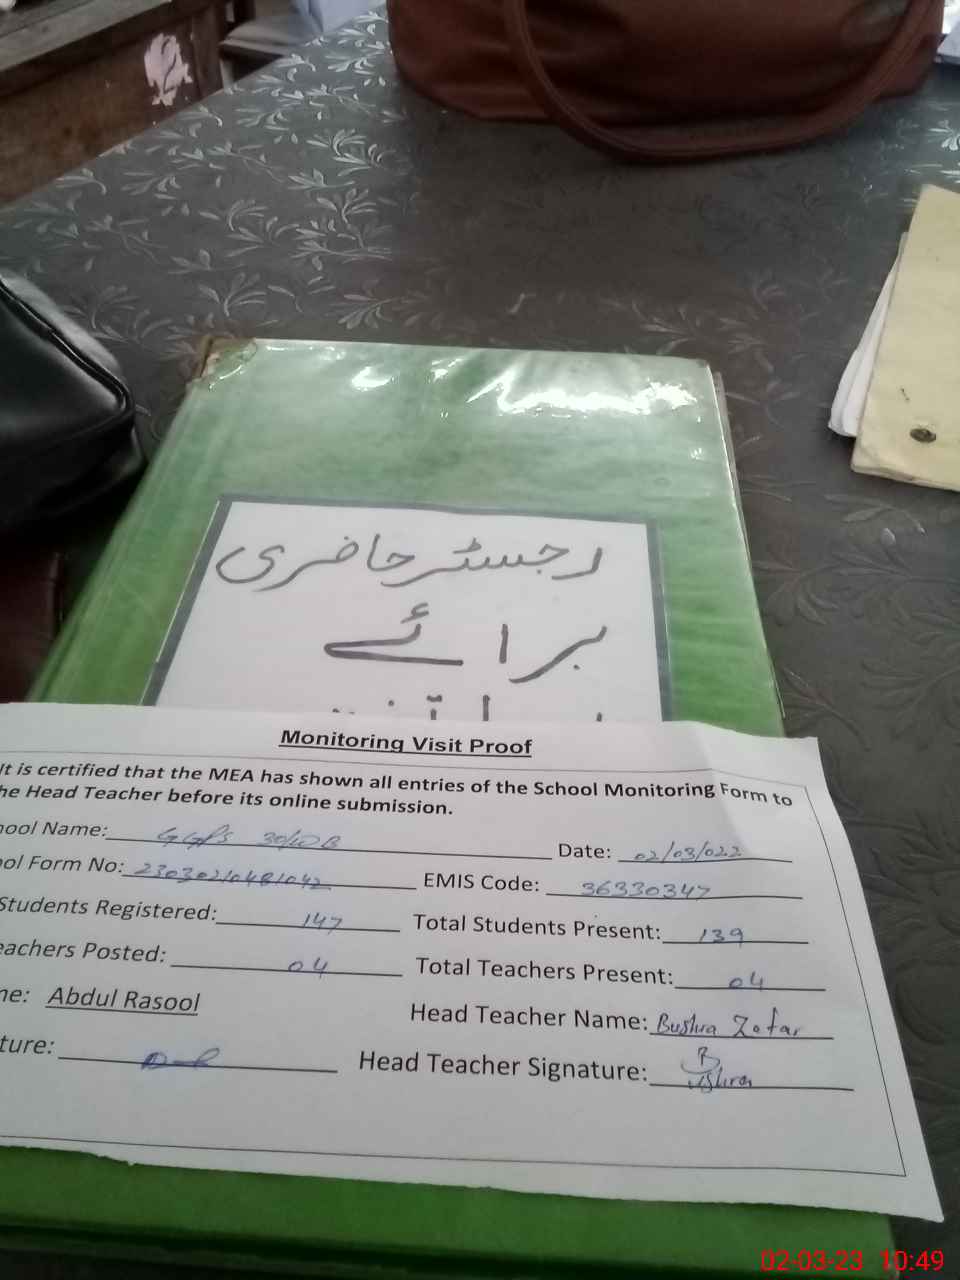 رجسٹر حاضری
برائے
Monitoring Visit Proof
It is certified that the MEA has shown all entries of the School Monitoring Form to
he Head Teacher before its online submission.
hool Name: GGPS 30/10R Date: 02/03/022
ol Form No: EMIS Code: 36330347
Students Registered: 147 Total Students Present: 139
eachers Posted: 04 Total Teachers Present: 04
ne: Abdul Rasool Head Teacher Name: Bushra Zafar
ture: Head Teacher Signature: Bushra
02-03-23 10:49